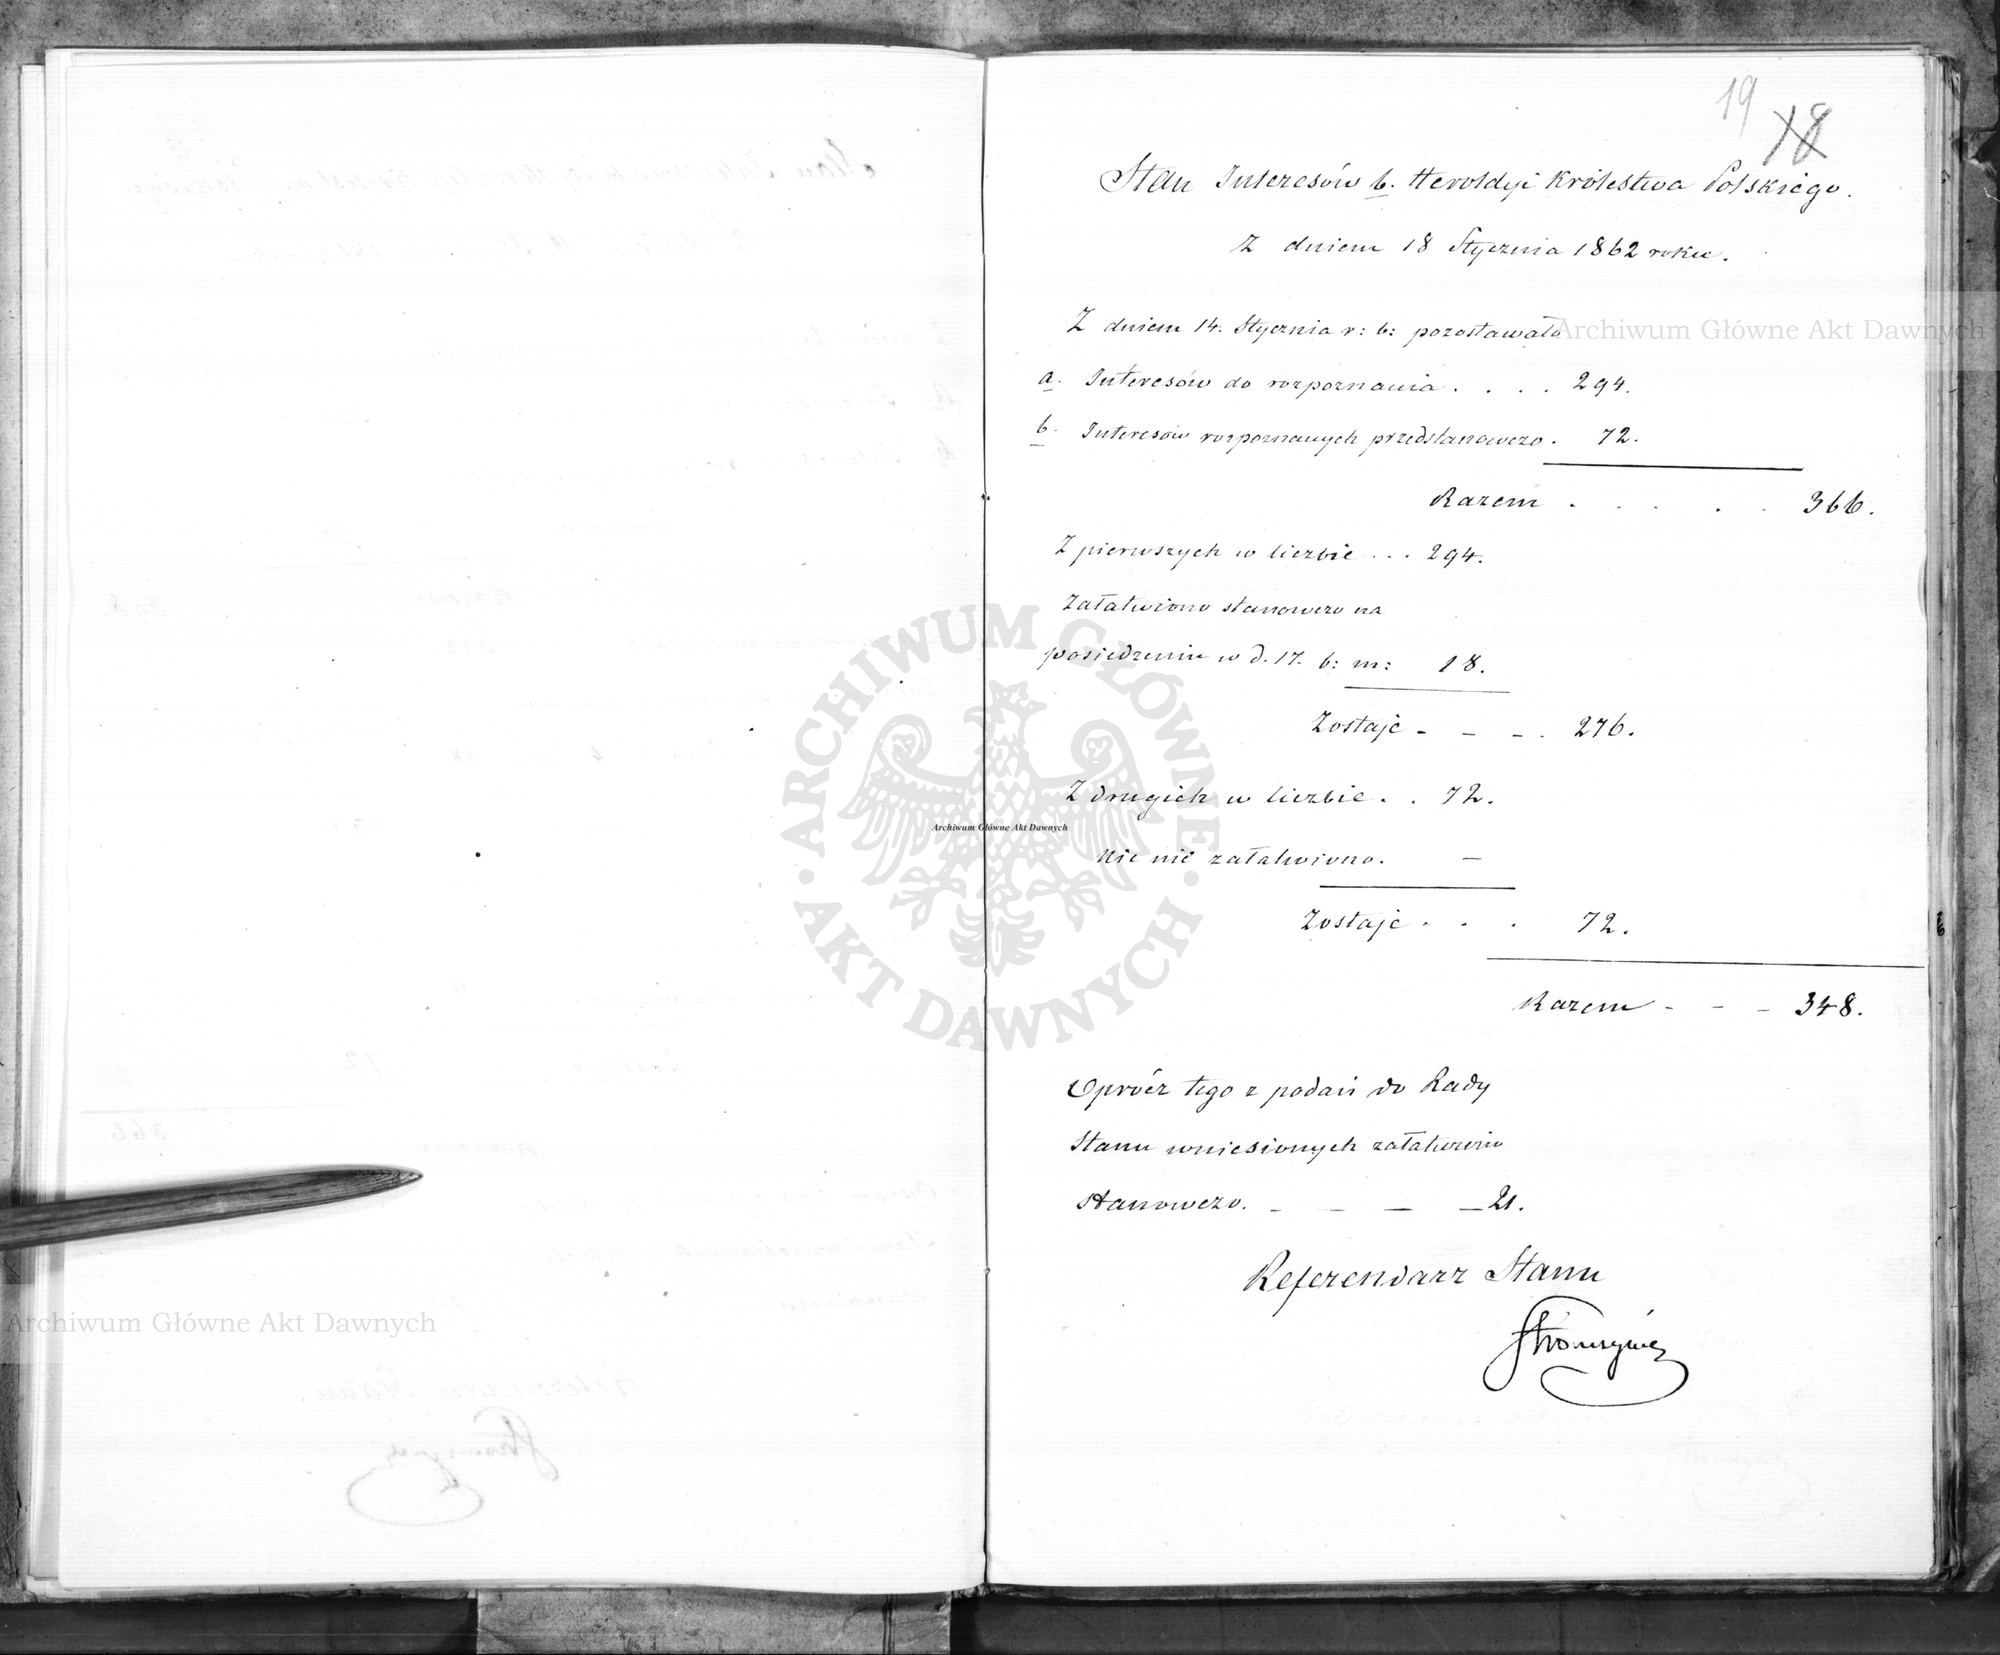 19
18
Stan Interesów b. Heroldyi Królestwa Polskiego.
Z dniem 18 Stycznia 1862 roku.
Z dniem 14. Stycznia r: b: pozostawało
a. Interesów do rozpoznania . . . . 294.
b. Interesów rozpoznanych przedstanowczo . 72.
Razem . . . . . 366.
Z pierwszych w liczbie . . . 294.
Załatwiono stanowczo na
posiedzeniu w d. 17. b: m: 18.
Zostaje - - - . 276.
Z drugich w liczbie . . 72.
Nic nie załatwiono. —
Zostaje . . . 72.
Razem - - - 348.
Oprócz tego z podań do Rady
Stanu wniesionych załatwiono
stanowczo. - - - - 21.
Referendarz Stanu
Stronczyński
Archiwum Główne Akt Dawnych
ARCHIWUM GŁÓWNE AKT DAWNYCH
Archiwum Główne Akt Dawnych
Archiwum Główne Akt Dawnych